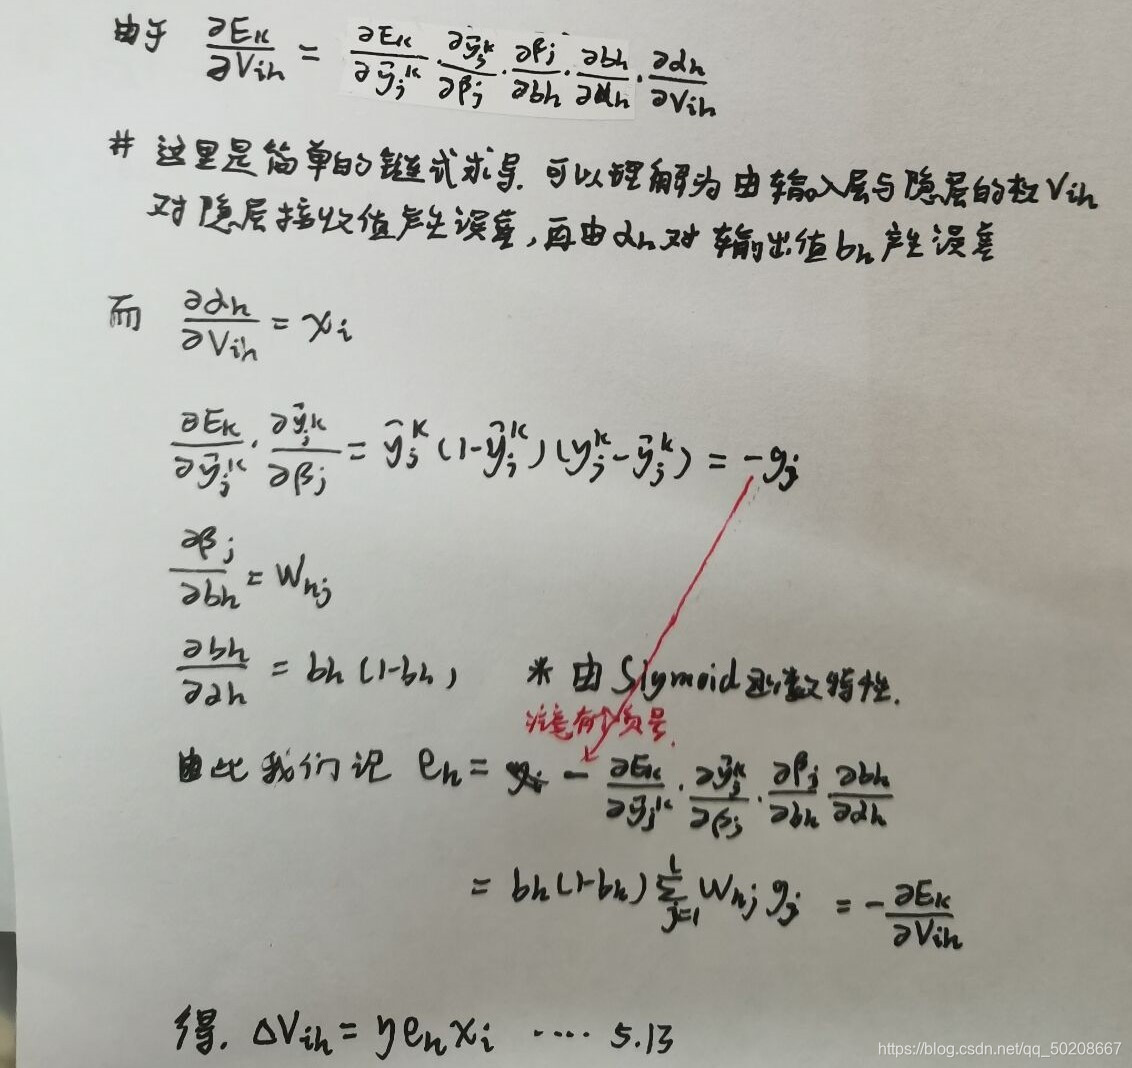 由于 ∂Eₖ/∂Vᵢₕ = ∂Eₖ/∂ŷⱼᵏ · ∂ŷⱼᵏ/∂βⱼ · ∂βⱼ/∂bₕ · ∂bₕ/∂αₕ · ∂αₕ/∂Vᵢₕ
# 这里是简单的链式求导. 可以理解为由输入层与隐层的权Vᵢₕ
对隐层接收值产生误差,再由αₕ对输出值bₕ产生误差
而 ∂αₕ/∂Vᵢₕ = xᵢ
∂Eₖ/∂ŷⱼᵏ · ∂ŷⱼᵏ/∂βⱼ = ŷⱼᵏ(1-ŷⱼᵏ)(yⱼᵏ-ŷⱼᵏ) = -gⱼ
∂βⱼ/∂bₕ = Wₕⱼ
∂bₕ/∂αₕ = bₕ(1-bₕ), * 由Sigmoid函数特性.
注意有个负号.
由此我们记 eₕ = - ∂Eₖ/∂ŷⱼᵏ · ∂ŷⱼᵏ/∂βⱼ · ∂βⱼ/∂bₕ · ∂bₕ/∂αₕ
= bₕ(1-bₕ) Σⱼ₌₁ˡ Wₕⱼ gⱼ = - ∂Eₖ/∂Vᵢₕ
得. ΔVᵢₕ = ηeₕxᵢ ···· 5.13
https://blog.csdn.net/qq_50208667